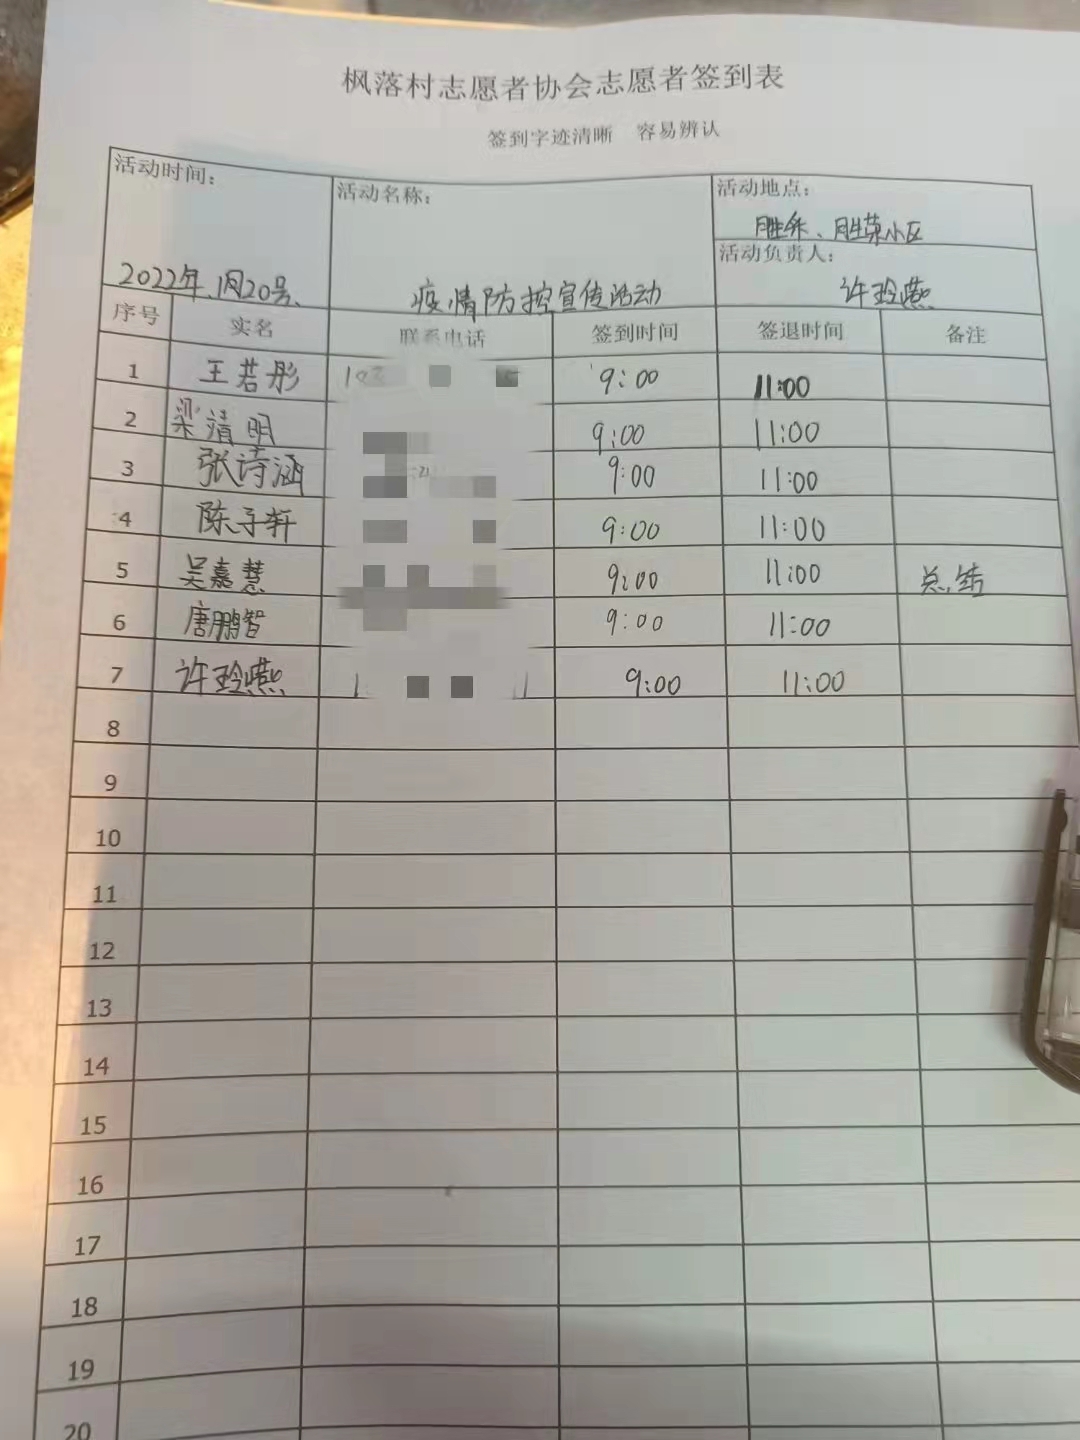 枫落村志愿者协会志愿者签到表
签到字迹清晰 容易辨认
活动时间: 活动名称: 活动地点:
胜乐、胜荣小区
活动负责人:
2022年1月20号、 疫情防控宣传活动 许玲燕
序号 实名 联系电话 签到时间 签退时间 备注
1 王若彤 9:00 11:00
2 梁清明 9:00 11:00
3 张诗涵 9:00 11:00
4 陈子轩 9:00 11:00
5 吴嘉慧 9:00 11:00 总结
6 唐鹏智 9:00 11:00
7 许玲燕 9:00 11:00
8
9
10
11
12
13
14
15
16
17
18
19
20